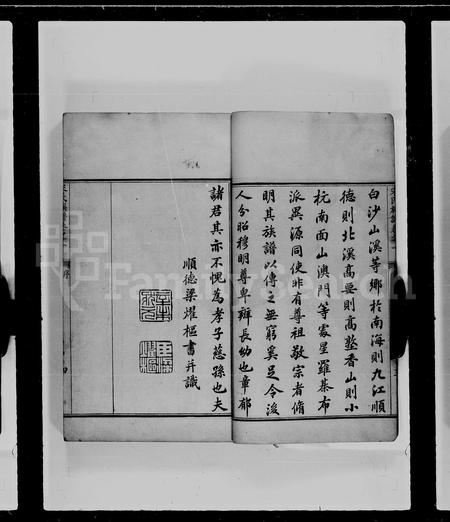 白沙山溪等鄉於南海則九江順
德則北溪高要則高塱香山則小
杭南面山澳門等處星羅棊布
派異源同使非有尊祖敬宗者脩
明其族譜以傳之無窮奚足令後
人分昭穆明尊卑辦長幼也章郁
諸君其亦不愧為孝子慈孫也夫
順德梁燿樞書并識
序
FamilySearch